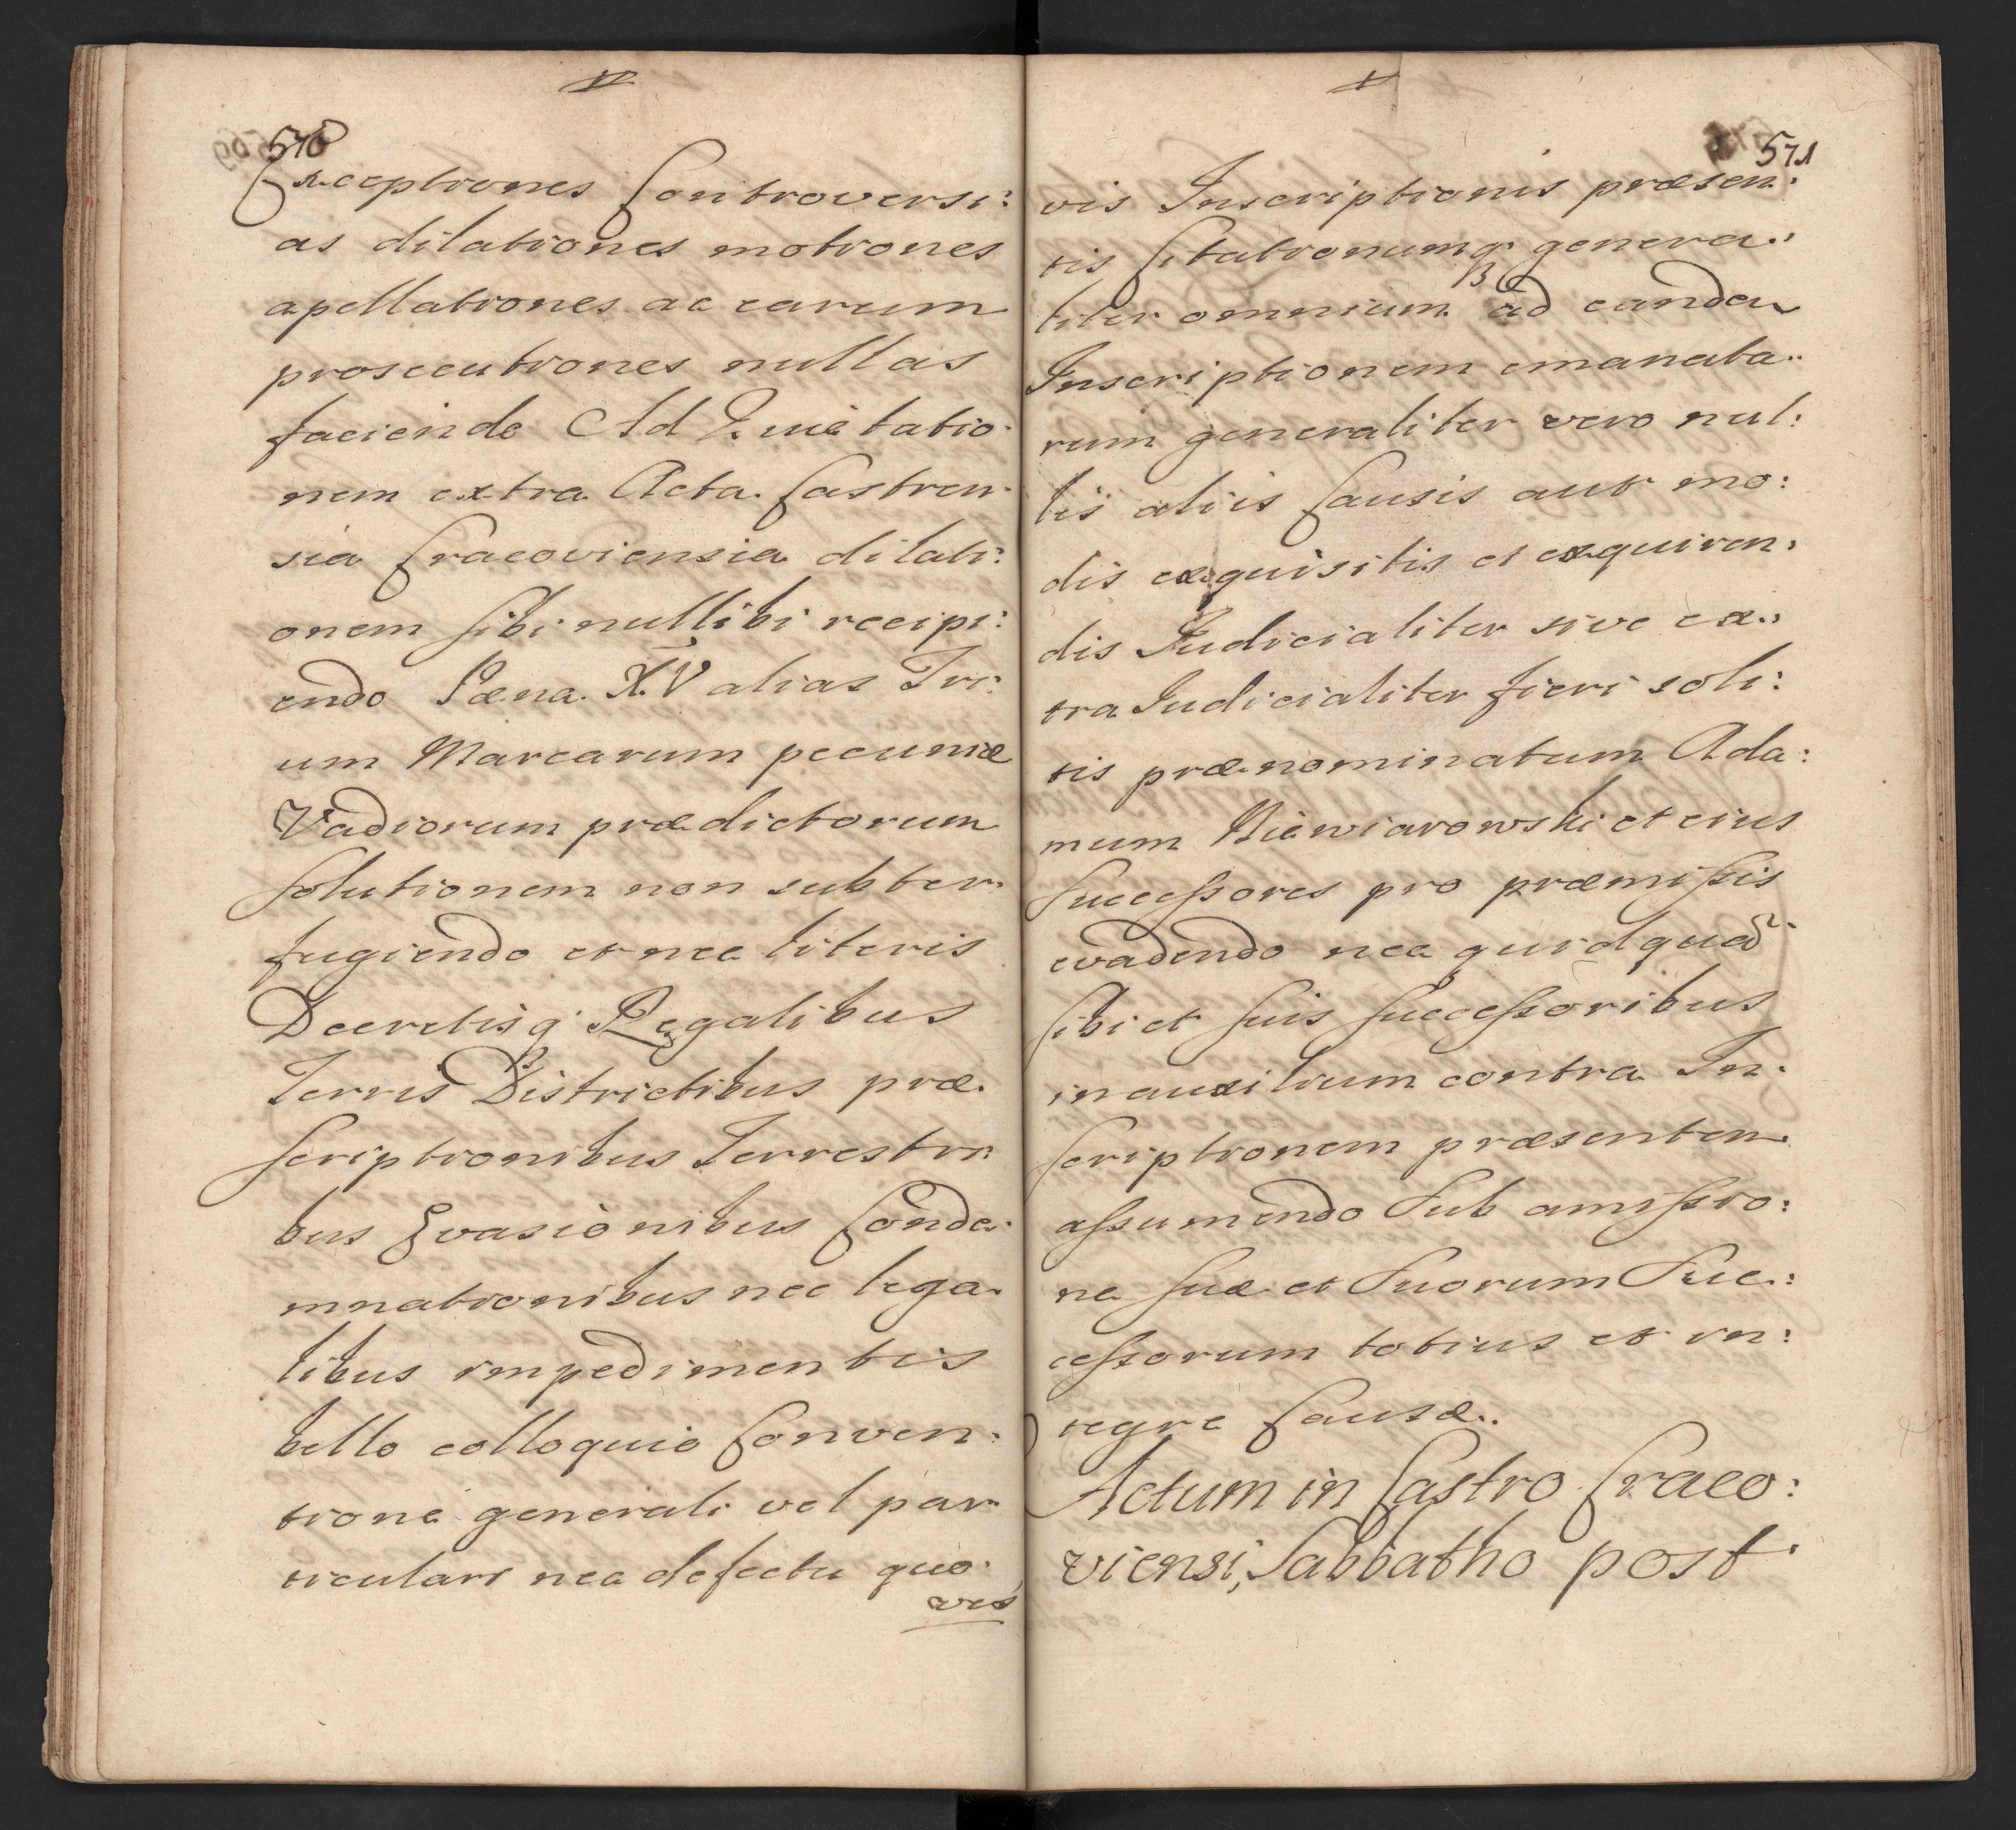 570
Exceptiones Controversi:
as dilationes motiones
apellationes ac earum
prosecutiones nullas
faciendo Ad Quietatio
nem extra Acta Castren
sia Cracoviensia dilati:
onem sibi nullibi recipi:
endo Pæna X.V alias Tri
um Marcarum pecuniæ
Vadiorum prædictorum
solutionem non subter
fugiendo et nec literis
Decretisq Regalibus
Terris Districtibus præ
scriptionibus Terrestri
bus Evasionibus Conde
mnationibus nec lega
libus impedimentis
bello colloquio Conven:
tione generali vel par
ticulari nec defectu quo
vis
571
vis Inscriptionis præsen:
tis Citationumq genera:
liter omnium ad eandem
Inscriptionem emanata
rum generaliter vero nul:
lis aliis Causis aut mo:
dis exquisitis et exquiren
dis Judicialiter sive ex
tra Judicialiter fieri soli:
tis prænominatum Ada:
mum Niewiarowski et eius
Successores pro præmissis
evadendo nec quidquã
sibi et suis Successoribus
in auxilium contra In
scriptionem præsentem
assumendo Sub amissio:
ne suæ et Suorum Suc:
cessorum totius et in:
tegre Causæ.
Actum in Castro Craco:
viensi, Sabbatho post